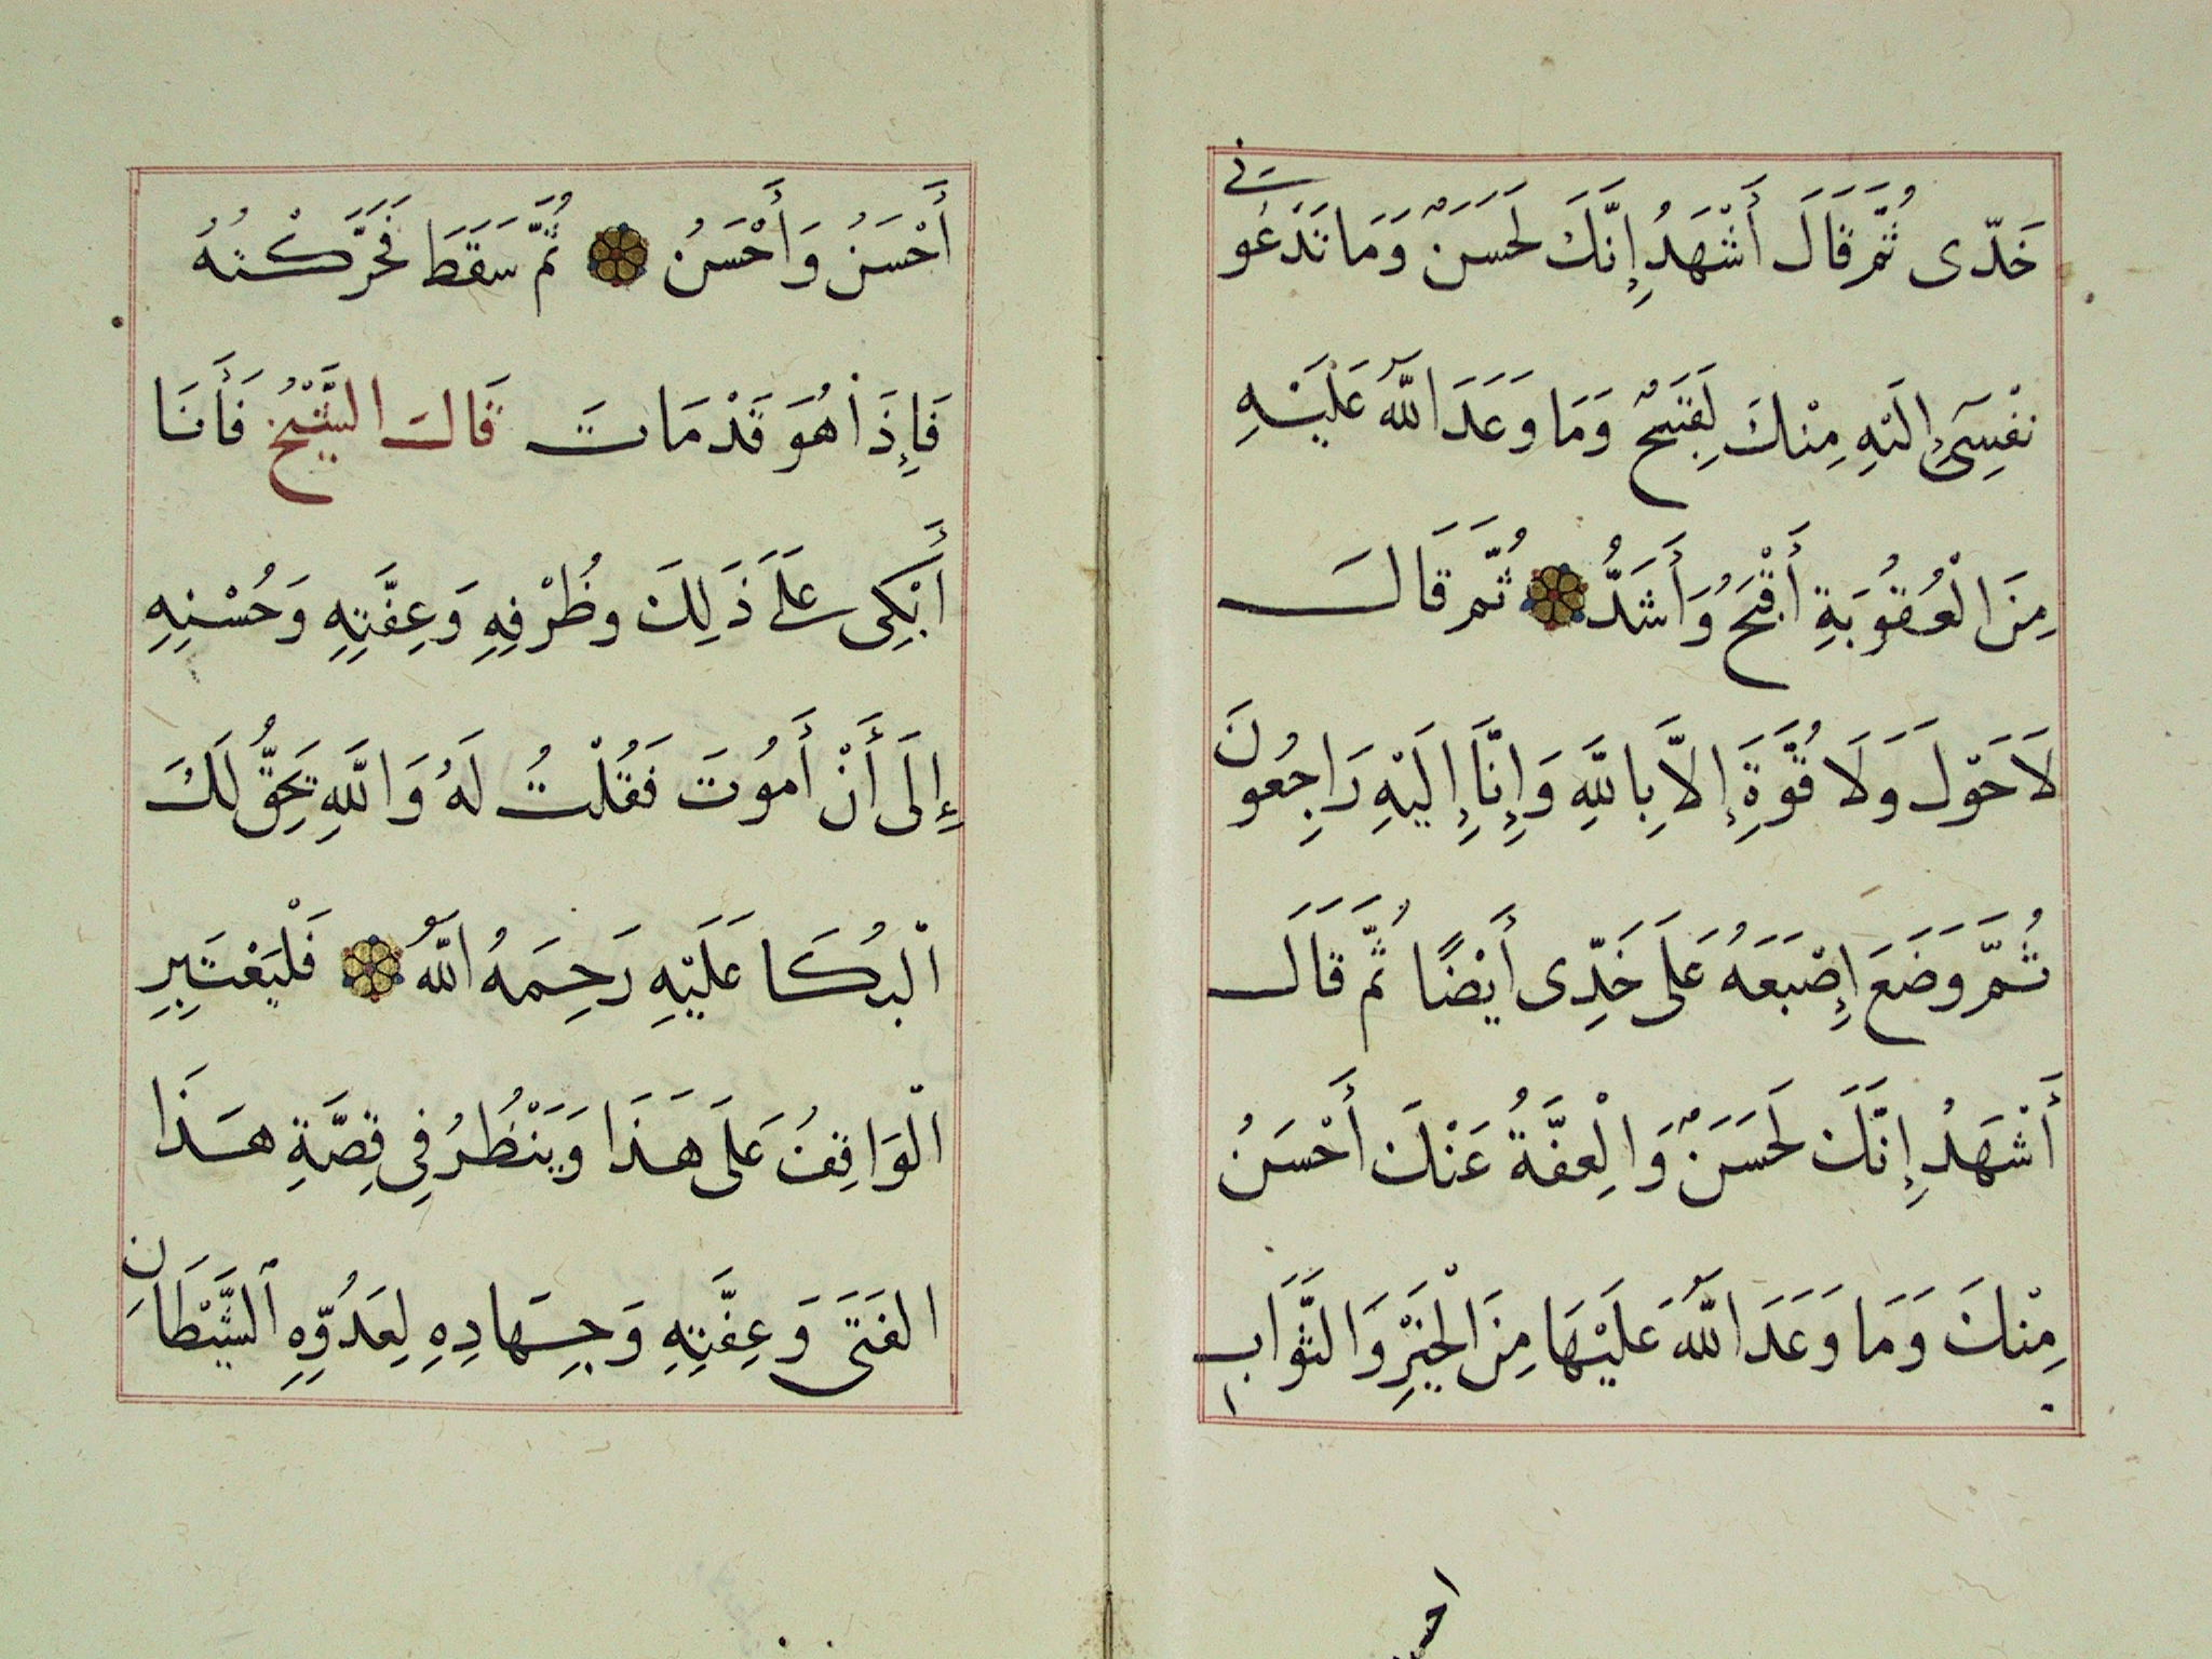 خَدّى ثُمَّ قَالَ أَشْهَدُ إِنَّكَ لَحَسَنٌ وَمَا تَدْعُونِى
نَفْسِىَ إِلَيْهِ مِنْكَ لَقَبِيحٌ وَمَا وَعَدَ اللّٰهُ عَلَيْهِ
مِنَ الْعُقُوبَةِ أَقْبَحُ وَأَشَدُّ ثُمَّ قَالَ
لَا حَوْلَ وَلَا قُوَّةَ إِلَّا بِاللّٰهِ وَإِنَّا إِلَيْهِ رَاجِعُونَ
ثُمَّ وَضَعَ إِصْبَعَهُ عَلَى خَدِّى أَيْضًا ثُمَّ قَالَ
أَشْهَدُ إِنَّكَ لَحَسَنٌ وَالْعِفَّةُ عَنْكَ أَحْسَنُ
مِنْكَ وَمَا وَعَدَ اللّٰهُ عَلَيْهَا مِنَ الْخَيْرِ وَالثَّوَابِ
أَحْسَنُ وَأَحْسَنُ ثُمَّ سَقَطَ فَحَرَّكْتُهُ
فَإِذَا هُوَ قَدْ مَاتَ قَالَ الشَّيْخُ فَأَنَا
أَبْكِى عَلَى ذَلِكَ وظُرْفِهِ وَعِفَّتِهِ وَحُسْنِهِ
إِلَى أَنْ أَمُوتَ فَقُلْتُ لَهُ وَاللّٰهِ يَحِقُّ لَكَ
الْبُكَا عَلَيْهِ رَحِمَهُ اللّٰهُ فَلْيَعْتَبِرِ
الْوَاقِفُ عَلَى هَذَا وَيَنْظُرُ فِى قِصَّةِ هَذَا
الفَتَى وَعِفَّتِهِ وَجِهَادِهِ لِعَدُوِّهِ الشَّيْطَانِ